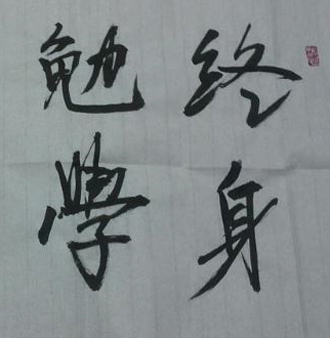 終身
勉學